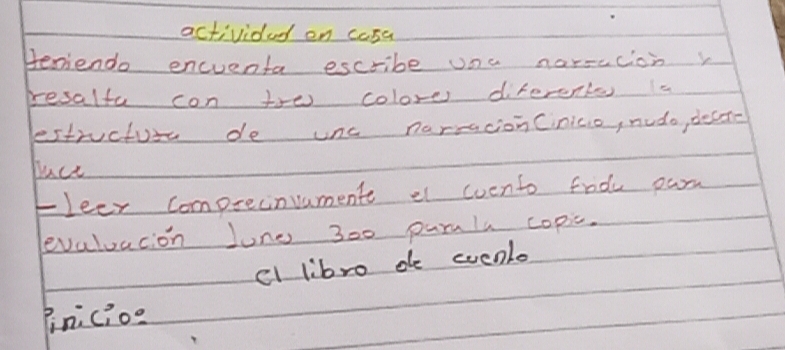 actividad en casa
teniendo encuenta escribe una narración y
resalta con tres colores diferentes la
estructura de una narración (inicio, nudo, desen-
luce
-leer comprecinvamente el cuento frida para
evaluación lunes 300 para la copia.
el libro de cuento
inicio: